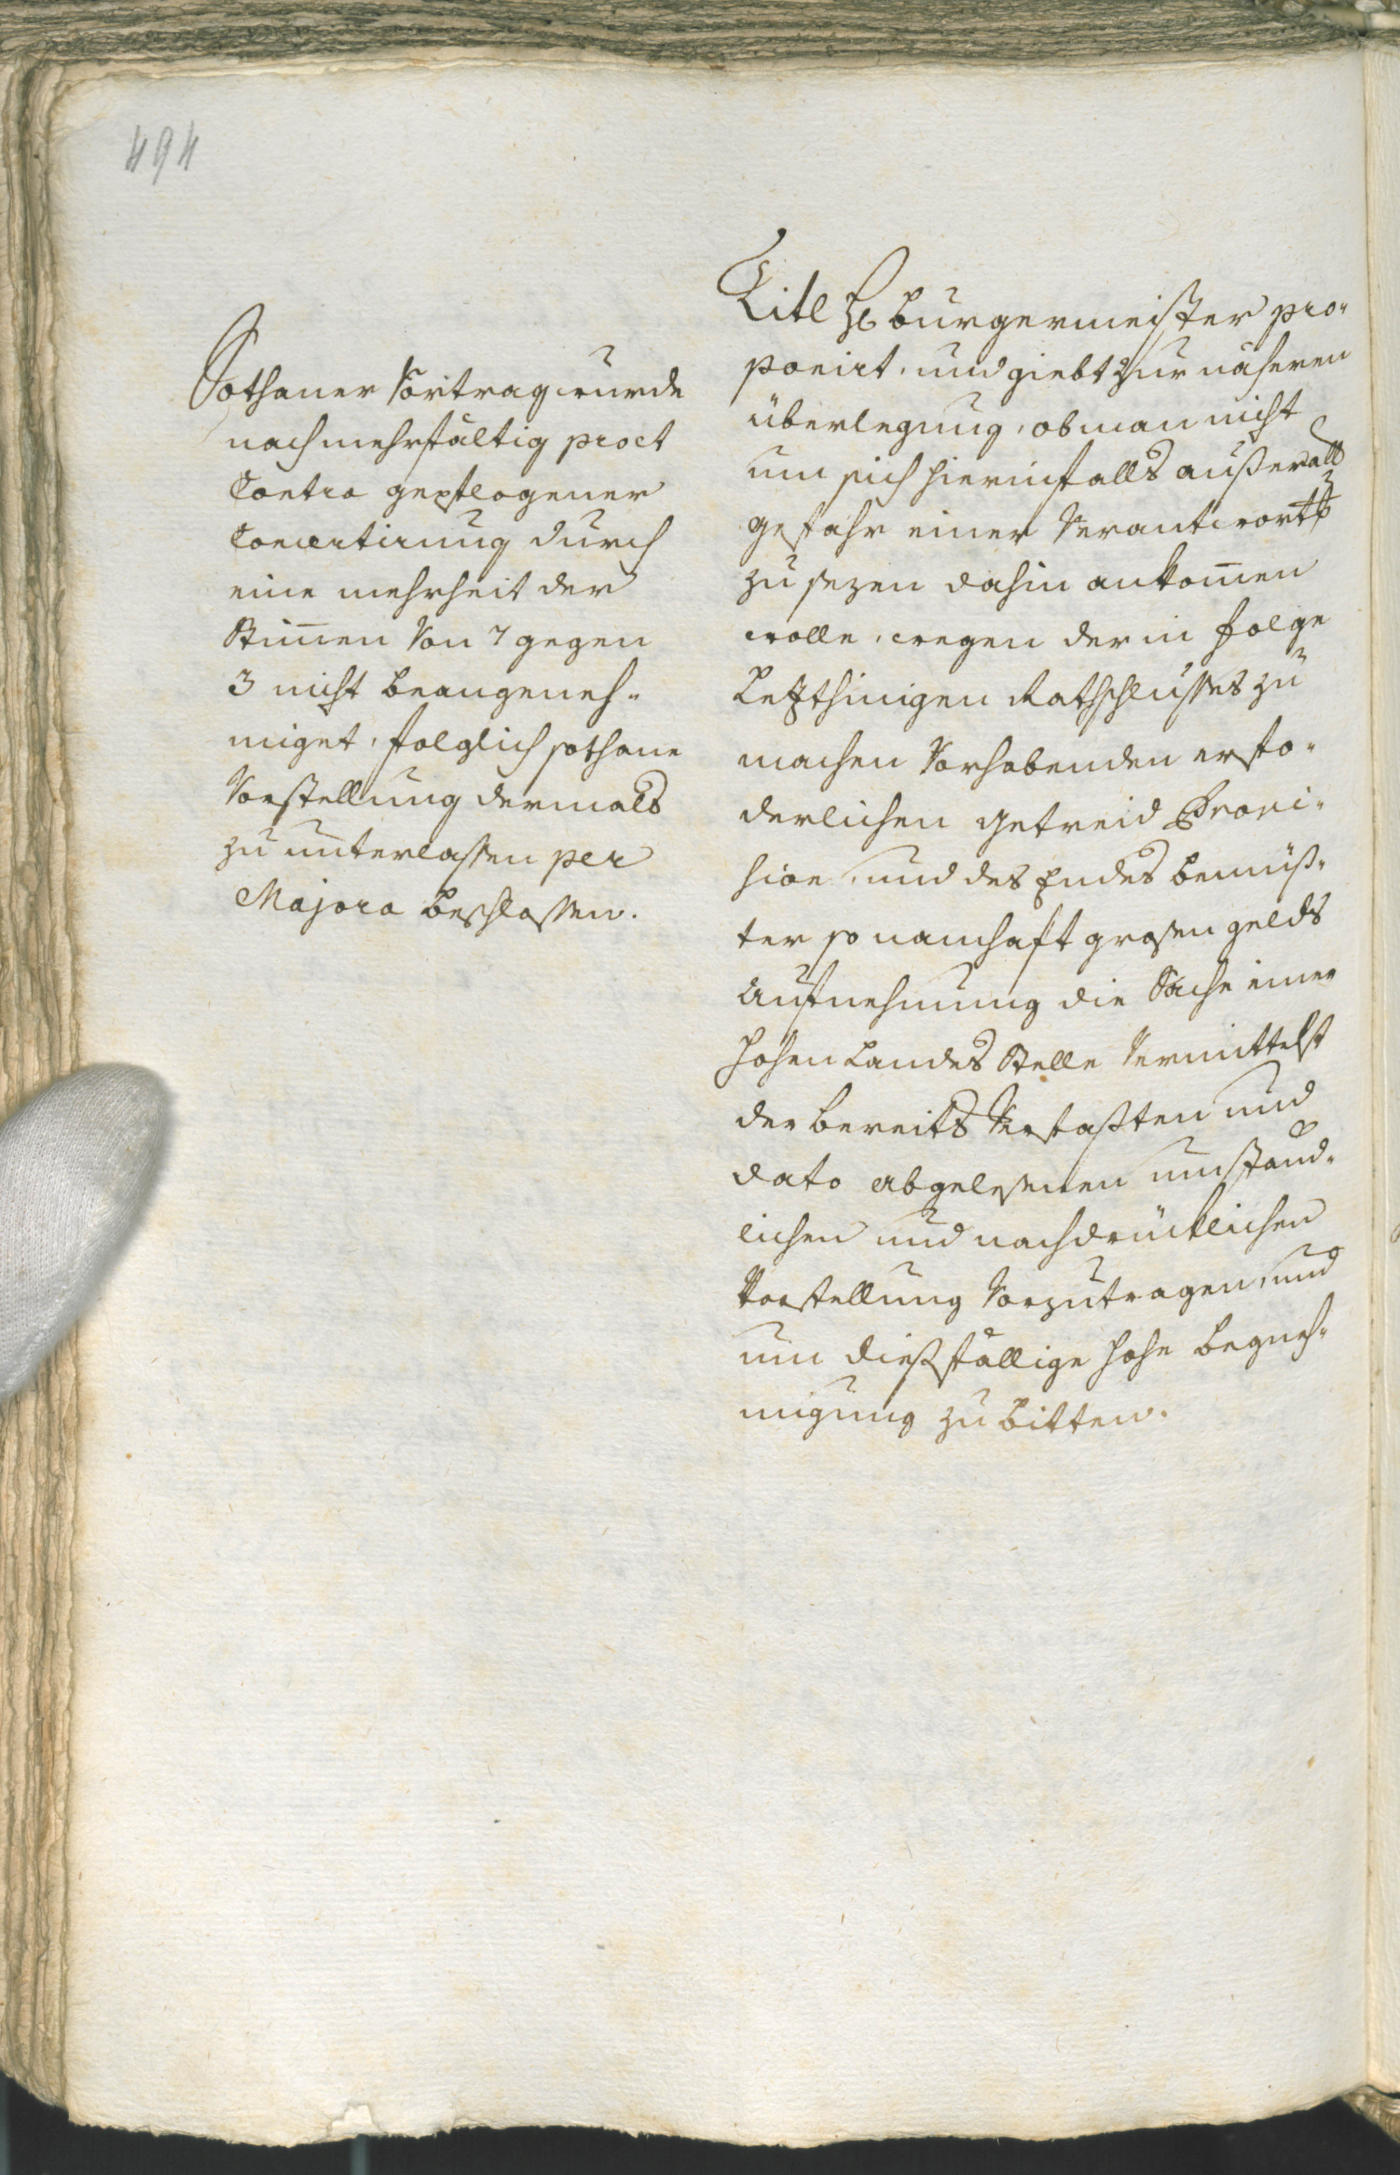 494
Sothaner Vortrag wurde
nach mehrfältig pro et
Contra gepflogener
Concertirung durch
eine mehrheit der
Stim̅en von 7 gegen
3 nicht beangeneh-
miget, folglich sothane
Vorstellung dermals
zu unterlassen per
Majora beschlossen.
Titl H burgermeister pro-
ponirt, und giebt zur näheren
überlegung, ob man nicht
um sich hierinfalls außer all
gefahr einer Verantwort
zu sezen dahin ankom̅en
wolle, wegen der in folge
Letzthinigen Rathschlusses zu
machen Vorhabenden erfo-
derlichen getreid Provi-
sion, und des Endes bemüß-
ter so namhaft grosen gelds
Aufnehmung die Sache einer
hohen Landes Stelle Vermittelst
der bereits Verfaßten und
dato abgelesenen umständ-
lichen und nachdrücklichen
Vorstellung Vorzutragen, und
um dießfällige hohe begneh-
migung zu bitten.